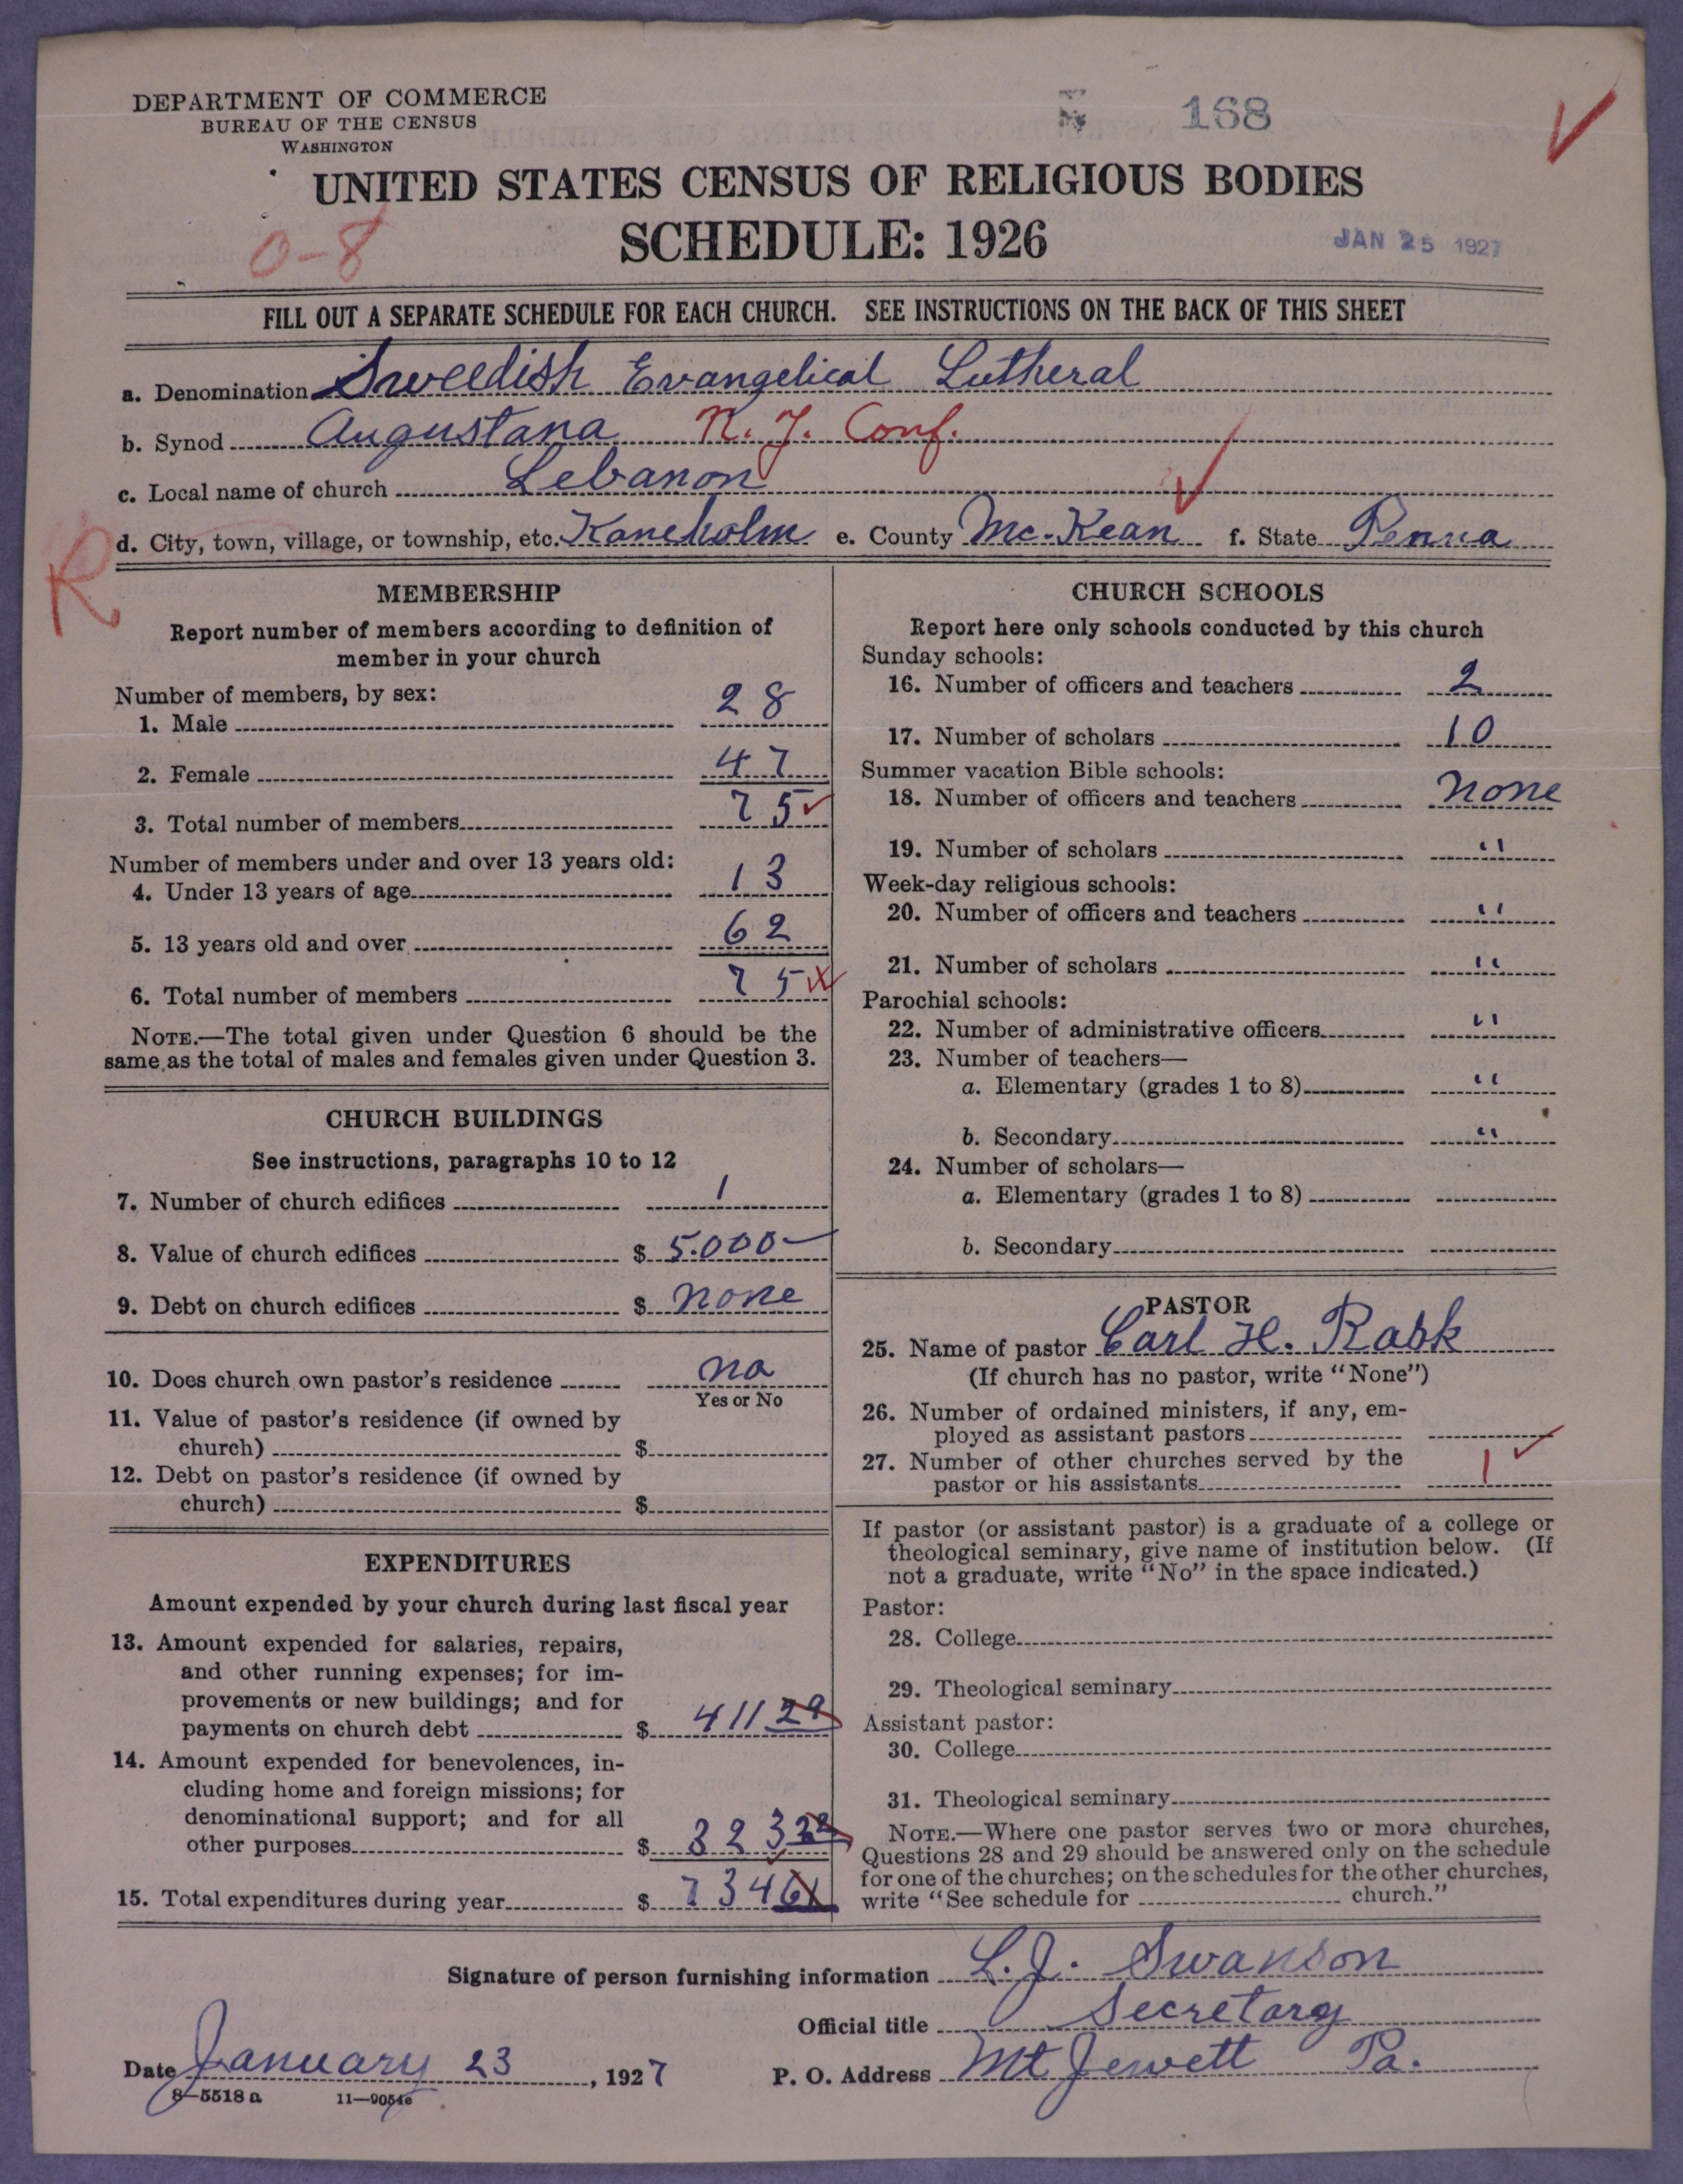 DEPARTMENT OF COMMERCE
BUREAU OF THE CENSUS
WASHINGTON
168
UNITED STATES CENSUS OF RELIGIOUS BODIES
SCHEDULE: 1926
0-8
JAN 25 1927
FILL OUT A SEPARATE SCHEDULE FOR EACH CHURCH. SEE INSTRUCTIONS ON THE BACK OF THIS SHEET
a. Denomination Sweedish Evangelical Lutheral
b. Synod Augustana N.Y. Conf.
c. Local name of church Lebanon
d. City, town, village, or township, etc. Kaneholm e. County Mc-Kean f. State Penna
R
MEMBERSHIP
Report number of members according to definition of
member in your church
Number of members, by sex:
1. Male 28
2. Female 47
3. Total number of members 75
Number of members under and over 13 years old:
4. Under 13 years of age 13
5. 13 years old and over 62
6. Total number of members 75
NOTE.—The total given under Question 6 should be the
same as the total of males and females given under Question 3.
CHURCH BUILDINGS
See instructions, paragraphs 10 to 12
7. Number of church edifices 1
8. Value of church edifices $ 5.000-
9. Debt on church edifices $ none
10. Does church own pastor's residence no
Yes or No
11. Value of pastor's residence (if owned by
church) $
12. Debt on pastor's residence (if owned by
church) $
EXPENDITURES
Amount expended by your church during last fiscal year
13. Amount expended for salaries, repairs,
and other running expenses; for im-
provements or new buildings; and for
payments on church debt $ 411 29
14. Amount expended for benevolences, in-
cluding home and foreign missions; for
denominational support; and for all
other purposes $ 323 32
15. Total expenditures during year $ 734 61
CHURCH SCHOOLS
Report here only schools conducted by this church
Sunday schools:
16. Number of officers and teachers 2
17. Number of scholars 10
Summer vacation Bible schools:
18. Number of officers and teachers none
19. Number of scholars "
Week-day religious schools:
20. Number of officers and teachers "
21. Number of scholars "
Parochial schools:
22. Number of administrative officers "
23. Number of teachers—
a. Elementary (grades 1 to 8) "
b. Secondary "
24. Number of scholars—
a. Elementary (grades 1 to 8)
b. Secondary
PASTOR
25. Name of pastor Carl H. Rask
(If church has no pastor, write "None")
26. Number of ordained ministers, if any, em-
ployed as assistant pastors
27. Number of other churches served by the
pastor or his assistants 1
If pastor (or assistant pastor) is a graduate of a college or
theological seminary, give name of institution below. (If
not a graduate, write "No" in the space indicated.)
Pastor:
28. College
29. Theological seminary
Assistant pastor:
30. College
31. Theological seminary
NOTE.—Where one pastor serves two or more churches,
Questions 28 and 29 should be answered only on the schedule
for one of the churches; on the schedules for the other churches,
write "See schedule for church."
Signature of person furnishing information L.J. Swanson
Official title Secretary
Date January 23, 1927 P. O. Address Mt Jewett Pa.
8-5518 a 11—9054e